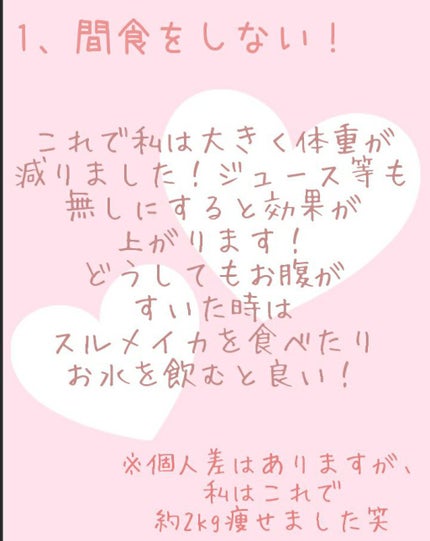 1、間食をしない！
これで私は大きく体重が
減りました！ジュース等も
無しにすると効果が
上がります！
どうしてもお腹が
すいた時は
スルメイカを食べたり
お水を飲むと良い！
※個人差はありますが、
私はこれで
約2kg痩せました笑